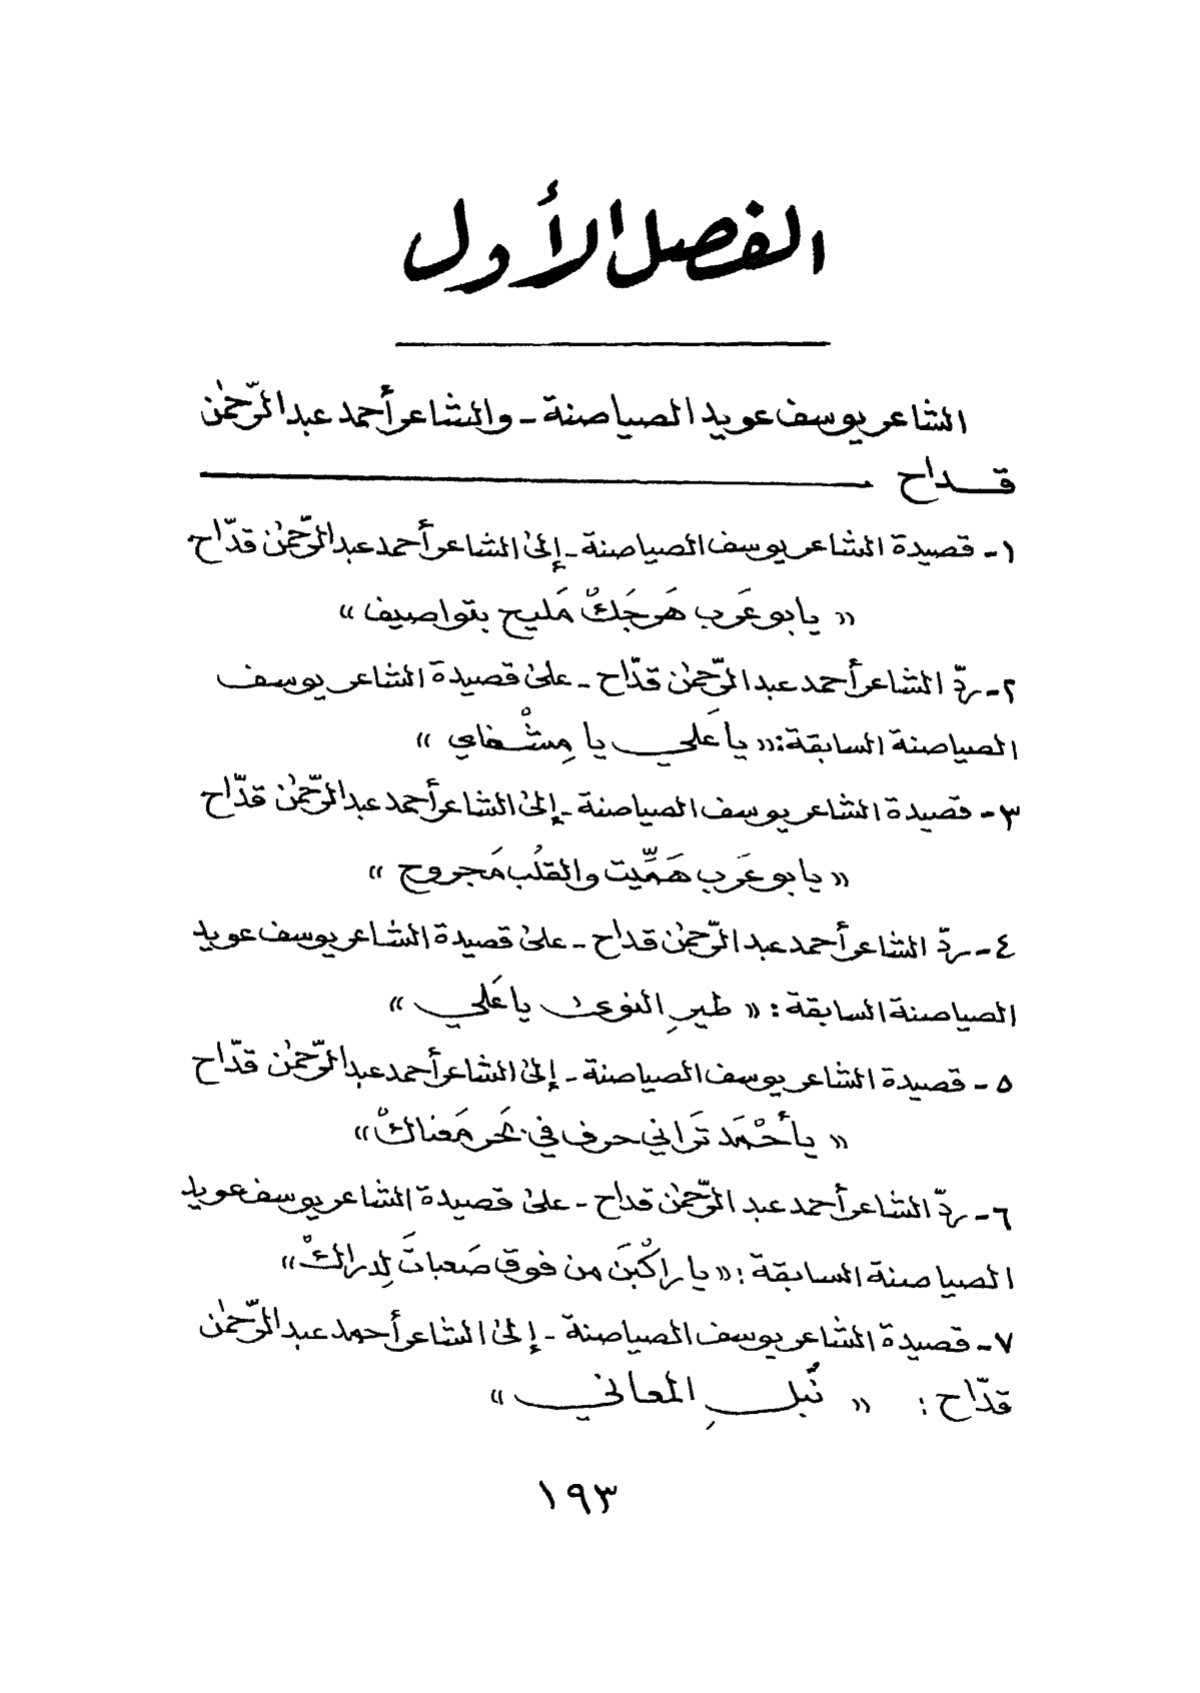 الفصل الأول
الشاعر يوسف عويد الصياصنة - والشاعر أحمد عبد الرّحمٰن
قداح
١- قصيدة الشاعر يوسف الصياصنة - إلىٰ الشاعر أحمد عبد الرّحمٰن قدّاح
« يابو عَرب هَرجَكْ مَليح بتواصيف »
٢- ردّ الشاعر أحمد عبد الرّحمٰن قدّاح - علىٰ قصيدة الشاعر يوسف
الصياصنة السابقة: « يا عَلي يا مِشْفاي »
٣- قصيدة الشاعر يوسف الصياصنة - إلىٰ الشاعر أحمد عبد الرّحمٰن قدّاح
« يابو عَرب هَمِّيت والقلُب مَجروح »
٤- ردّ الشاعر أحمد عبد الرّحمٰن قداح - علىٰ قصيدة الشاعر يوسف عويد
الصياصنة السابقة : « طيرِ النوىٰ يا عَلي »
٥- قصيدة الشاعر يوسف الصياصنة - إلىٰ الشاعر أحمد عبد الرّحمٰن قدّاح
« يا أحْمَد تَراني حرف في بَحر مَعناكْ »
٦- ردّ الشاعر أحمد عبد الرّحمٰن قداح - علىٰ قصيدة الشاعر يوسف عويد
الصياصنة السابقة : « يا راكْبَن من فوق صَعباتَ لِدراكْ »
٧- قصيدة الشاعر يوسف الصياصنة - إلىٰ الشاعر أحمد عبد الرّحمٰن
قدّاح : « نُبلِ المعاني »
١٩٣